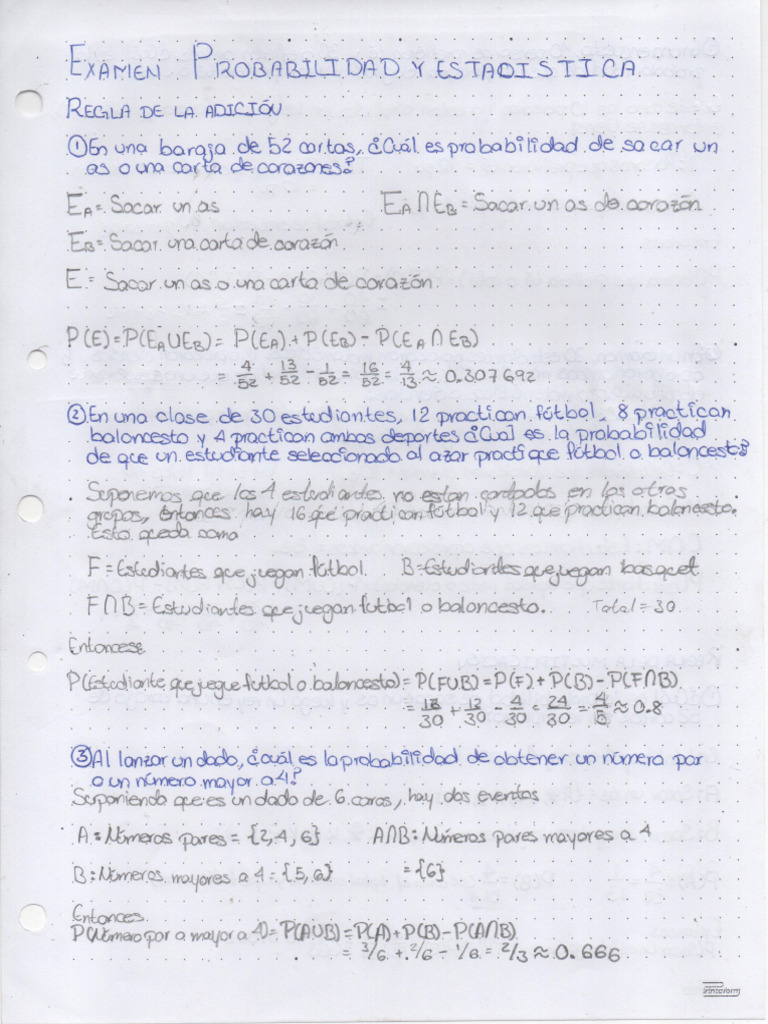 EXAMEN PROBABILIDAD Y ESTADISTICA.
REGLA DE LA ADICIÓN
① En una baraja de 52 cartas, ¿Cuál es probabilidad de sacar un
as o una carta de corazones?
E_A = Sacar un as    E_A ∩ E_B = Sacar un as de corazón
E_B = Sacar una carta de corazón
E = Sacar un as o una carta de corazón
P(E) = P(E_A ∪ E_B) = P(E_A) + P(E_B) - P(E_A ∩ E_B)
= 4/52 + 13/52 - 1/52 = 16/52 = 4/13 ≈ 0.307692
② En una clase de 30 estudiantes, 12 practican fútbol, 8 practican
baloncesto y 4 practican ambos deportes ¿Cual es la probabilidad
de que un estudiante seleccionado al azar practique fútbol o baloncesto?
Suponemos que los 4 estudiantes no estan contados en los otros
grupos, entonces hay 16 que practican fútbol y 12 que practican baloncesto.
Esto queda como
F = Estudiantes que juegan fútbol.    B = Estudiantes que juegan basquet
F ∩ B = Estudiantes que juegan futbol o baloncesto.    Total = 30
Entonces
P(Estudiante que juegue futbol o baloncesto) = P(F∪B) = P(F) + P(B) - P(F∩B)
= 16/30 + 12/30 - 4/30 = 24/30 = 4/5 ≈ 0.8
③ Al lanzar un dado, ¿cuál es la probabilidad de obtener un número par
o un número mayor a 4?
Suponiendo que es un dado de 6 caras, hay dos eventos
A: Números pares = {2,4,6}    A∩B: Números pares mayores a 4
B: Números mayores a 4 = {5,6}    = {6}
Entonces
P(Número par o mayor a 4) = P(A∪B) = P(A) + P(B) - P(A∩B)
= 3/6 + 2/6 - 1/6 = 2/3 ≈ 0.666
Printaform